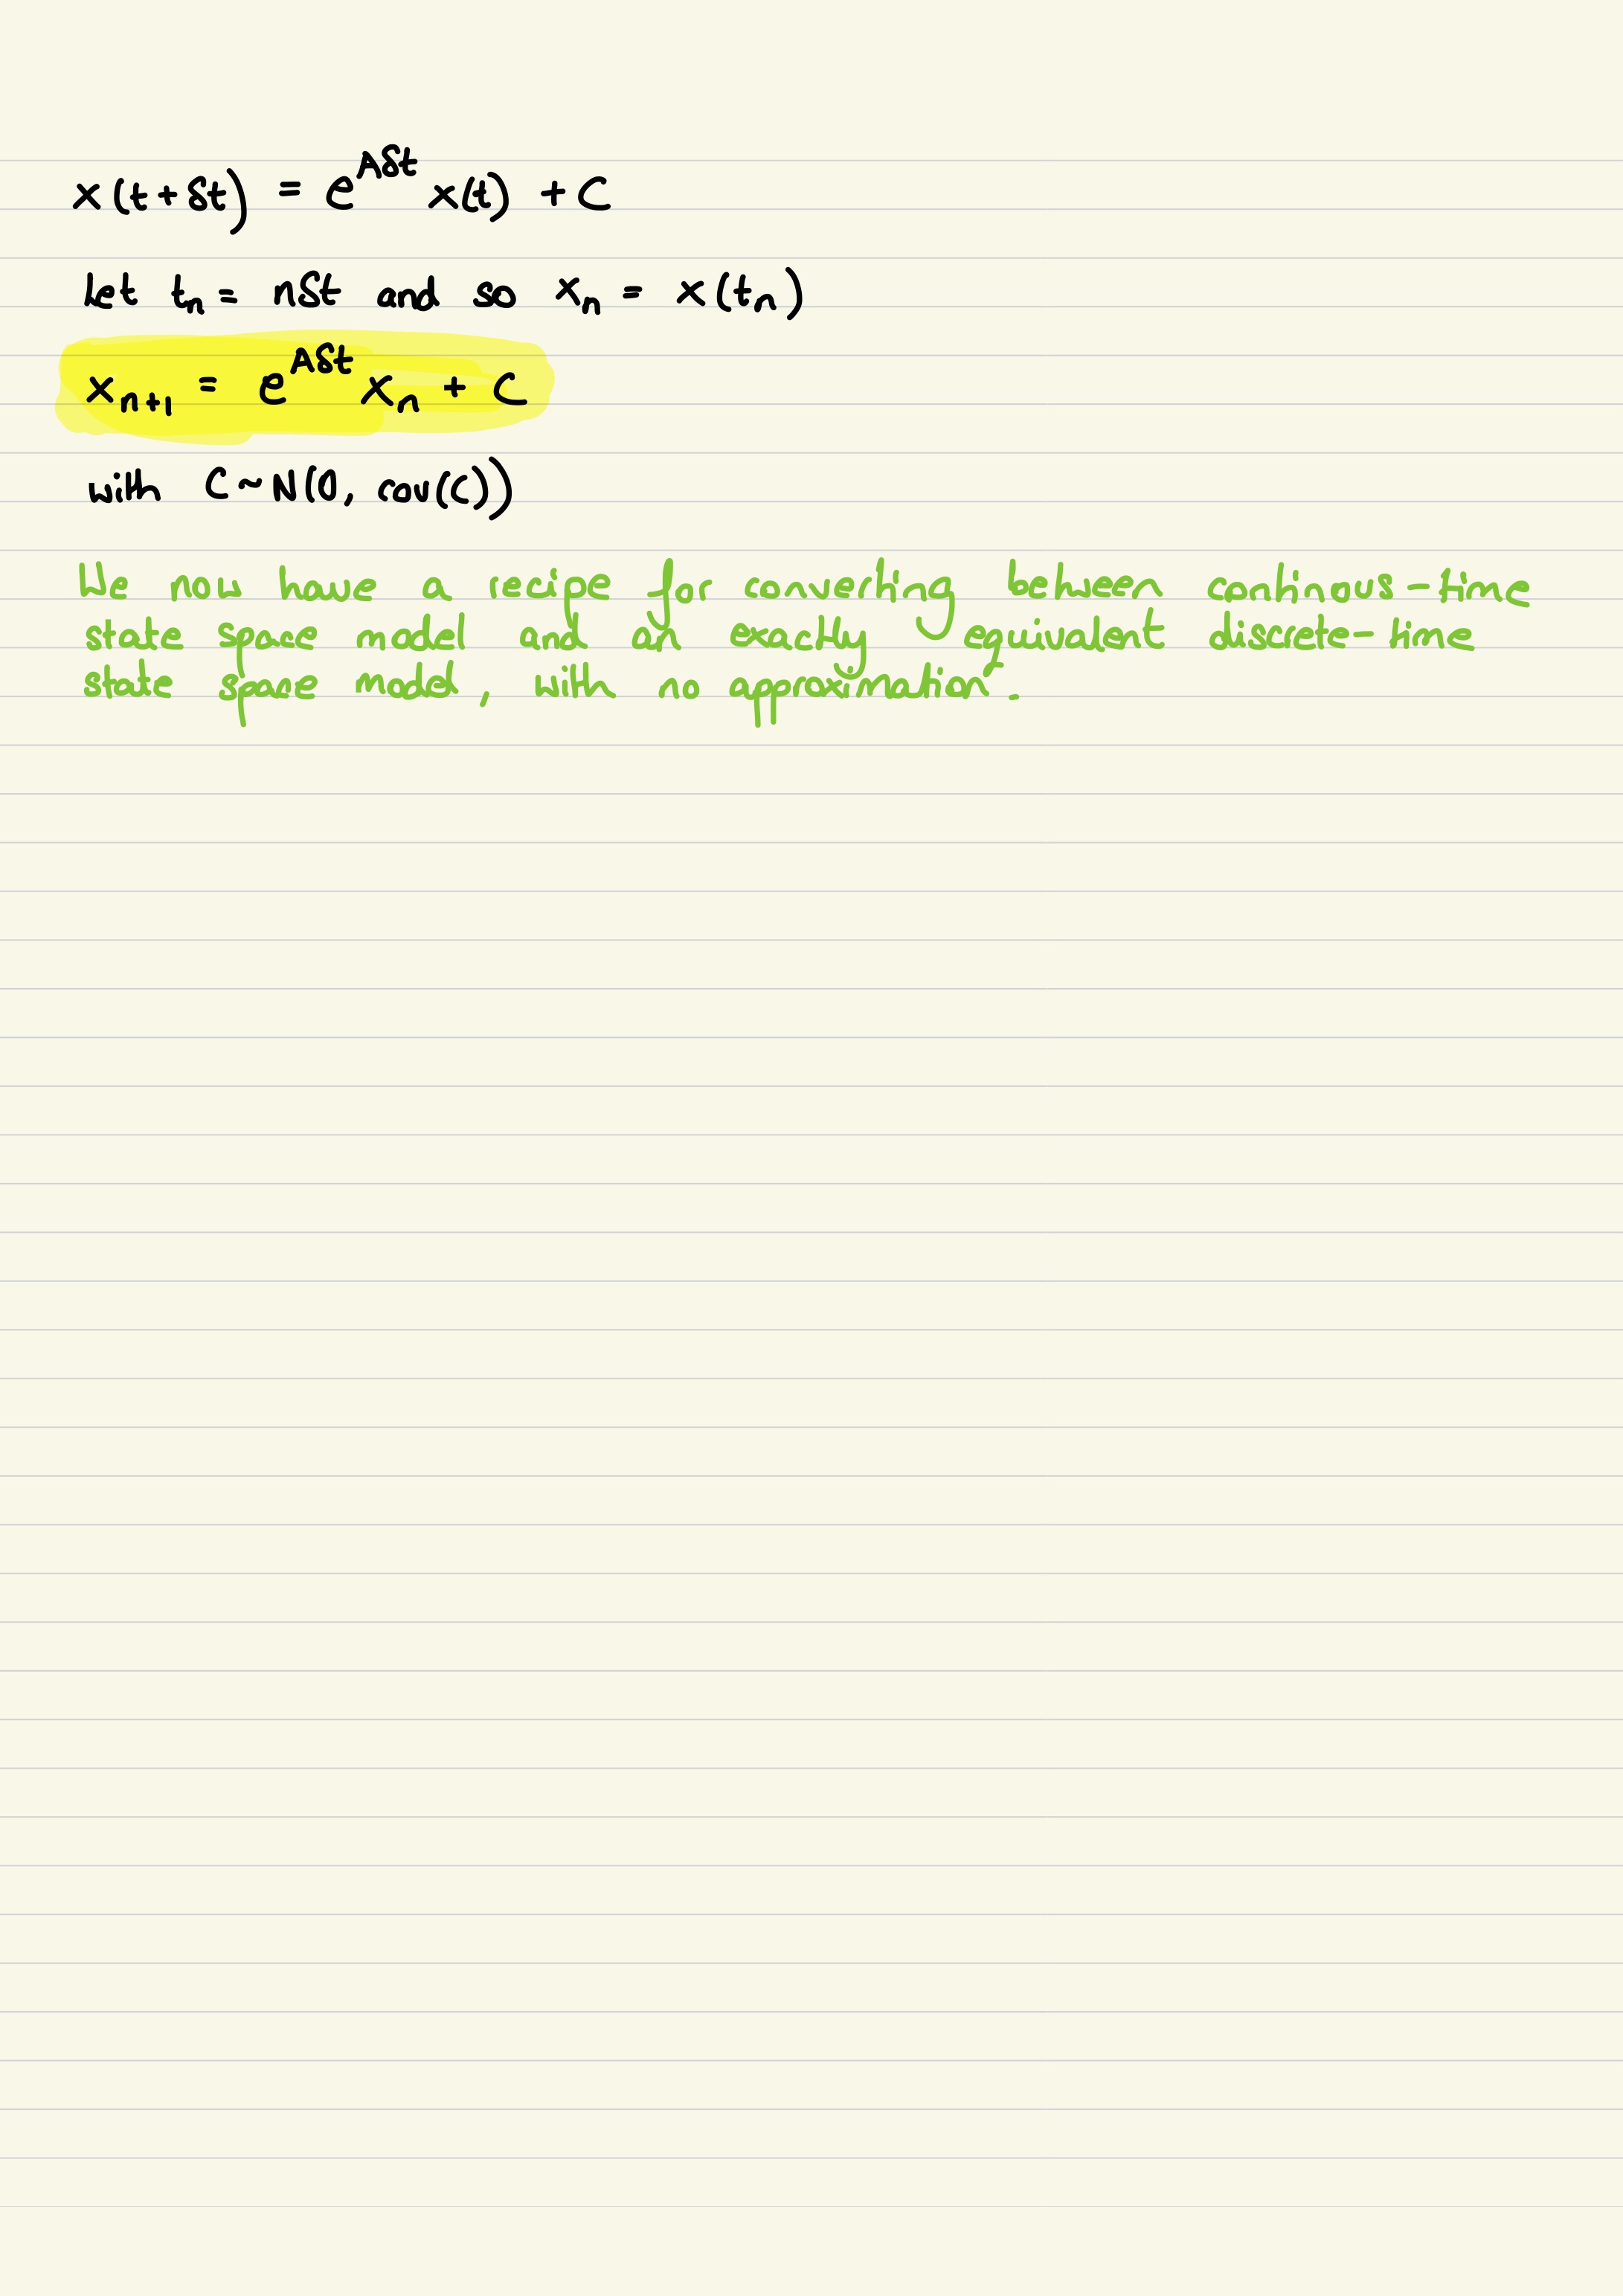 x(t+δt) = e^{Aδt} x(t) + C
let t_n = nδt and so x_n = x(t_n)
x_{n+1} = e^{Aδt} x_n + C
with C ~ N(0, cov(C))
We now have a recipe for converting between continous-time
state space model and an exactly equivalent discrete-time
state space model, with no approximation.